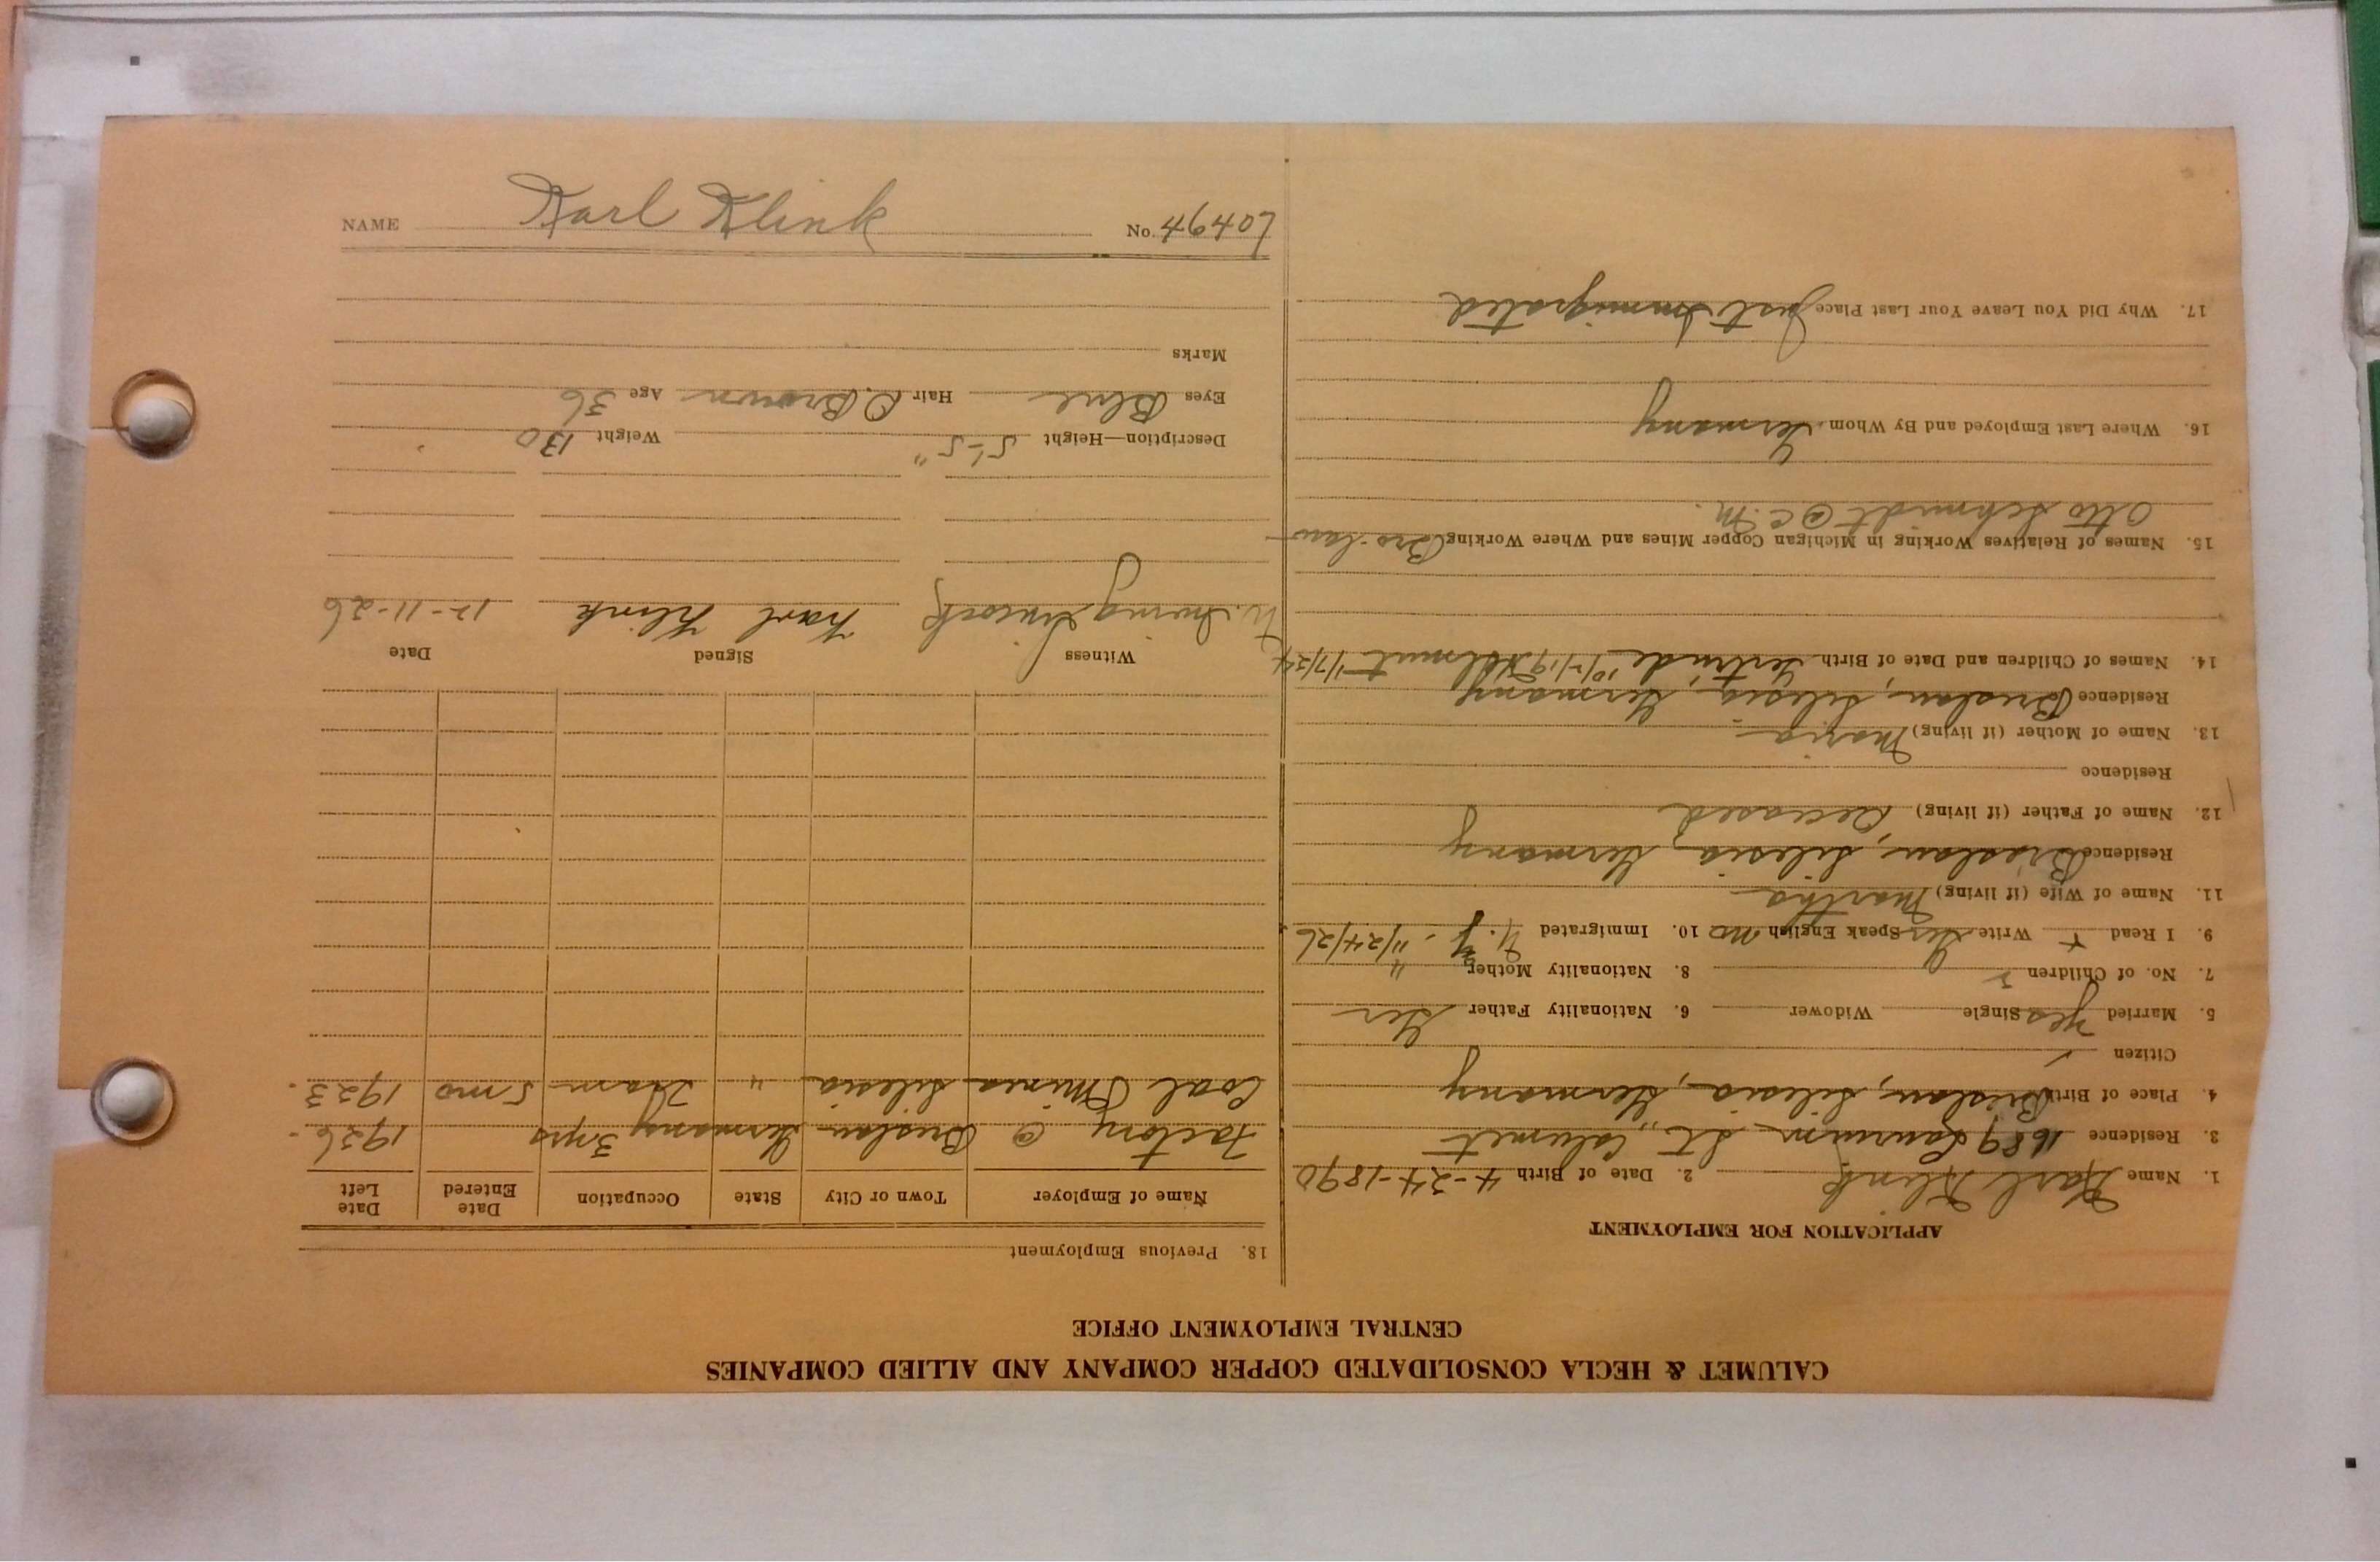 CALUMET & HECLA CONSOLIDATED COPPER COMPANY AND ALLIED COMPANIES
CENTRAL EMPLOYMENT OFFICE
APPLICATION FOR EMPLOYMENT
1. Name Karl Klink 2. Date of Birth 4-24-1890
3. Residence 1689 Laurium St., Calumet
4. Place of Birth Breslau, Silesia, Germany
Citizen
5. Married Yes Single Widower 6. Nationality Father Ger
7. No. of Children 2 8. Nationality Mother "
9. I Read + Write Ger Speak English no 10. Immigrated N.Y. - 11/24/26
11. Name of Wife (if living) Martha
Residence Breslau, Silesia, Germany
12. Name of Father (if living) Deceased
Residence
13. Name of Mother (if living) Maria
Residence Breslau, Silesia, Germany
14. Names of Children and Date of Birth Gertrude Helmut
15. Names of Relatives Working in Michigan Copper Mines and Where Working Bro-law
Otto Schmidt @ C.M.
16. Where Last Employed and By Whom Germany
17. Why Did You Leave Your Last Place Just Immigrated
18. Previous Employment
Name of Employer Town or City State Occupation Date Entered Date Left
Factory @ Breslau Germany 3 yrs 1926.
Coal Mines Silesia " Tram 5 mo 1923.
Witness Signed Date
Irving Karl Klink 12-11-26
Description—Height 5'-5" Weight 130
Eyes Blue Hair D. Brown Age 36
Marks
NAME Karl Klink No. 46940